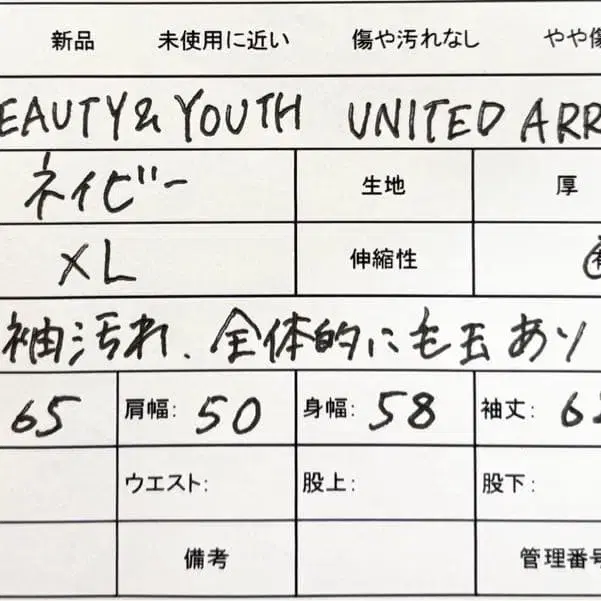 新品 未使用に近い 傷や汚れなし やや傷
EAUTY& YOUTH UNITED ARR
ネイビー 生地 厚
XL 伸縮性
袖汚れ、全体的に毛玉あり
65 肩幅: 50 身幅: 58 袖丈: 6
ウエスト: 股上: 股下:
備考 管理番号